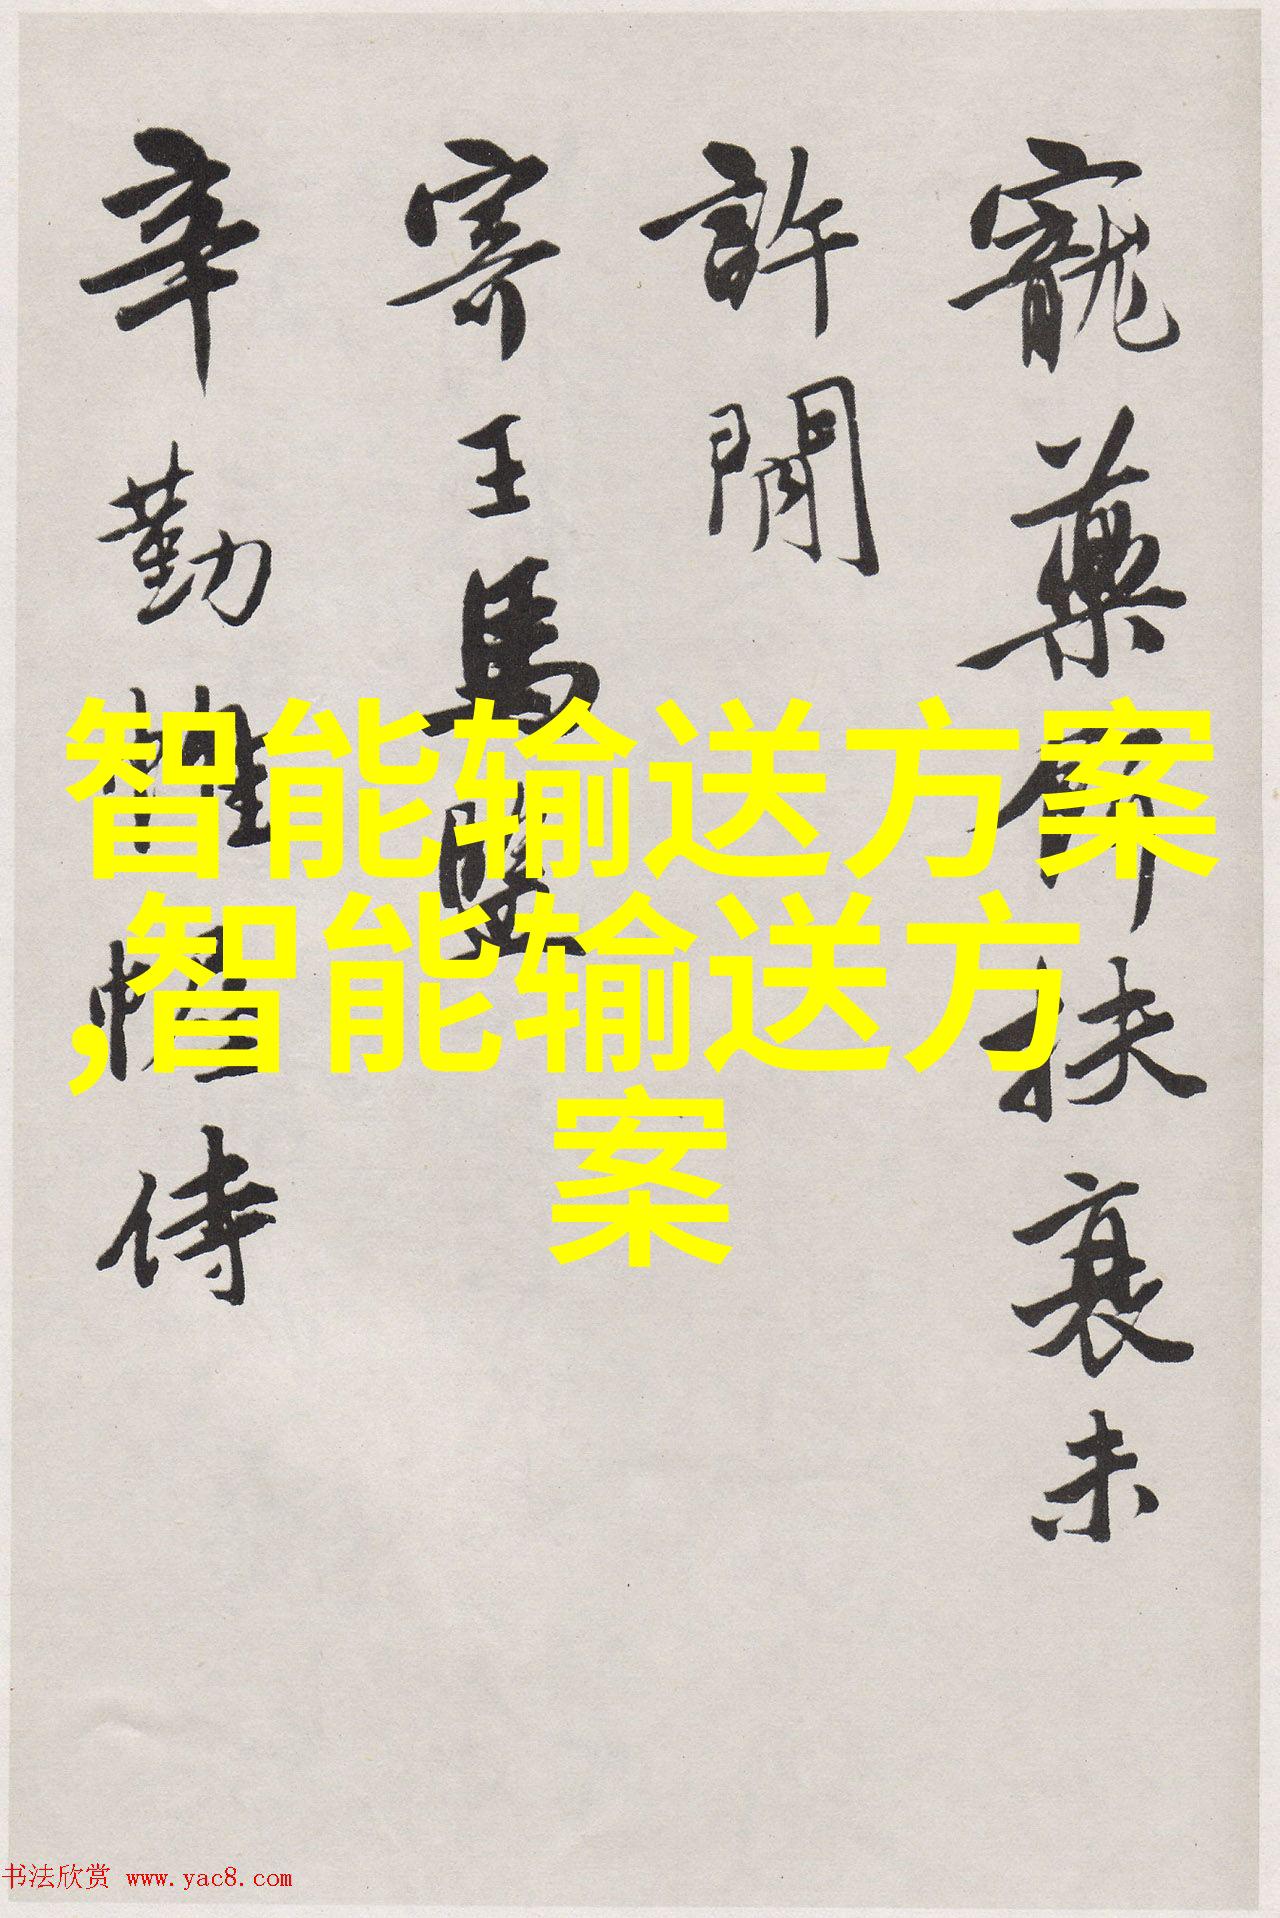 寵藥扶衰未
許閒
寄王馬
辛勤帷幄侍
智能输送方案
,智能输送方
案
书法欣赏 www.yac8.com